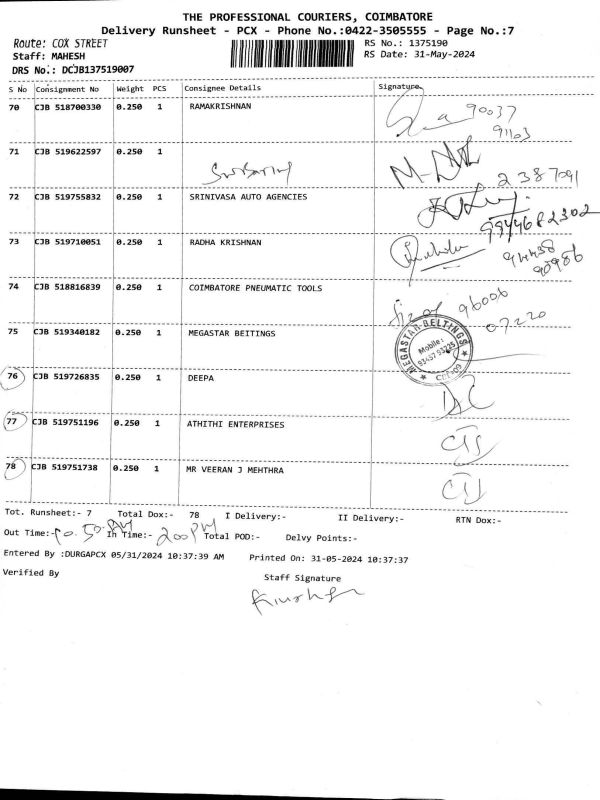 THE PROFESSIONAL COURIERS, COIMBATORE
Delivery Runsheet - PCX - Phone No.:0422-3505555 - Page No.:7
Route: COX STREET
RS No.: 1375190
Staff: MAHESH
RS Date: 31-May-2024
DRS No.: DCJB137519007
S No Consignment No Weight PCS Consignee Details Signature
70 CJB 518700330 0.250 1 RAMAKRISHNAN 90037
91103
71 CJB 519622597 0.250 1
2387091
72 CJB 519755832 0.250 1 SRINIVASA AUTO AGENCIES
9944682302
73 CJB 519710051 0.250 1 RADHA KRISHNAN
94438
90986
74 CJB 518816839 0.250 1 COIMBATORE PNEUMATIC TOOLS 96006
07220
75 CJB 519340182 0.250 1 MEGASTAR BEITINGS MEGASTAR BELTINGS Mobile:
76 CJB 519726835 0.250 1 DEEPA
77 CJB 519751196 0.250 1 ATHITHI ENTERPRISES
78 CJB 519751738 0.250 1 MR VEERAN J MEHTHRA
Tot. Runsheet:- 7 Total Dox:- 78 I Delivery:- II Delivery:- RTN Dox:-
Out Time:- 10.50 AM In Time:- 2.00 PM Total POD:- Delvy Points:-
Entered By :DURGAPCX 05/31/2024 10:37:39 AM Printed On: 31-05-2024 10:37:37
Verified By
Staff Signature